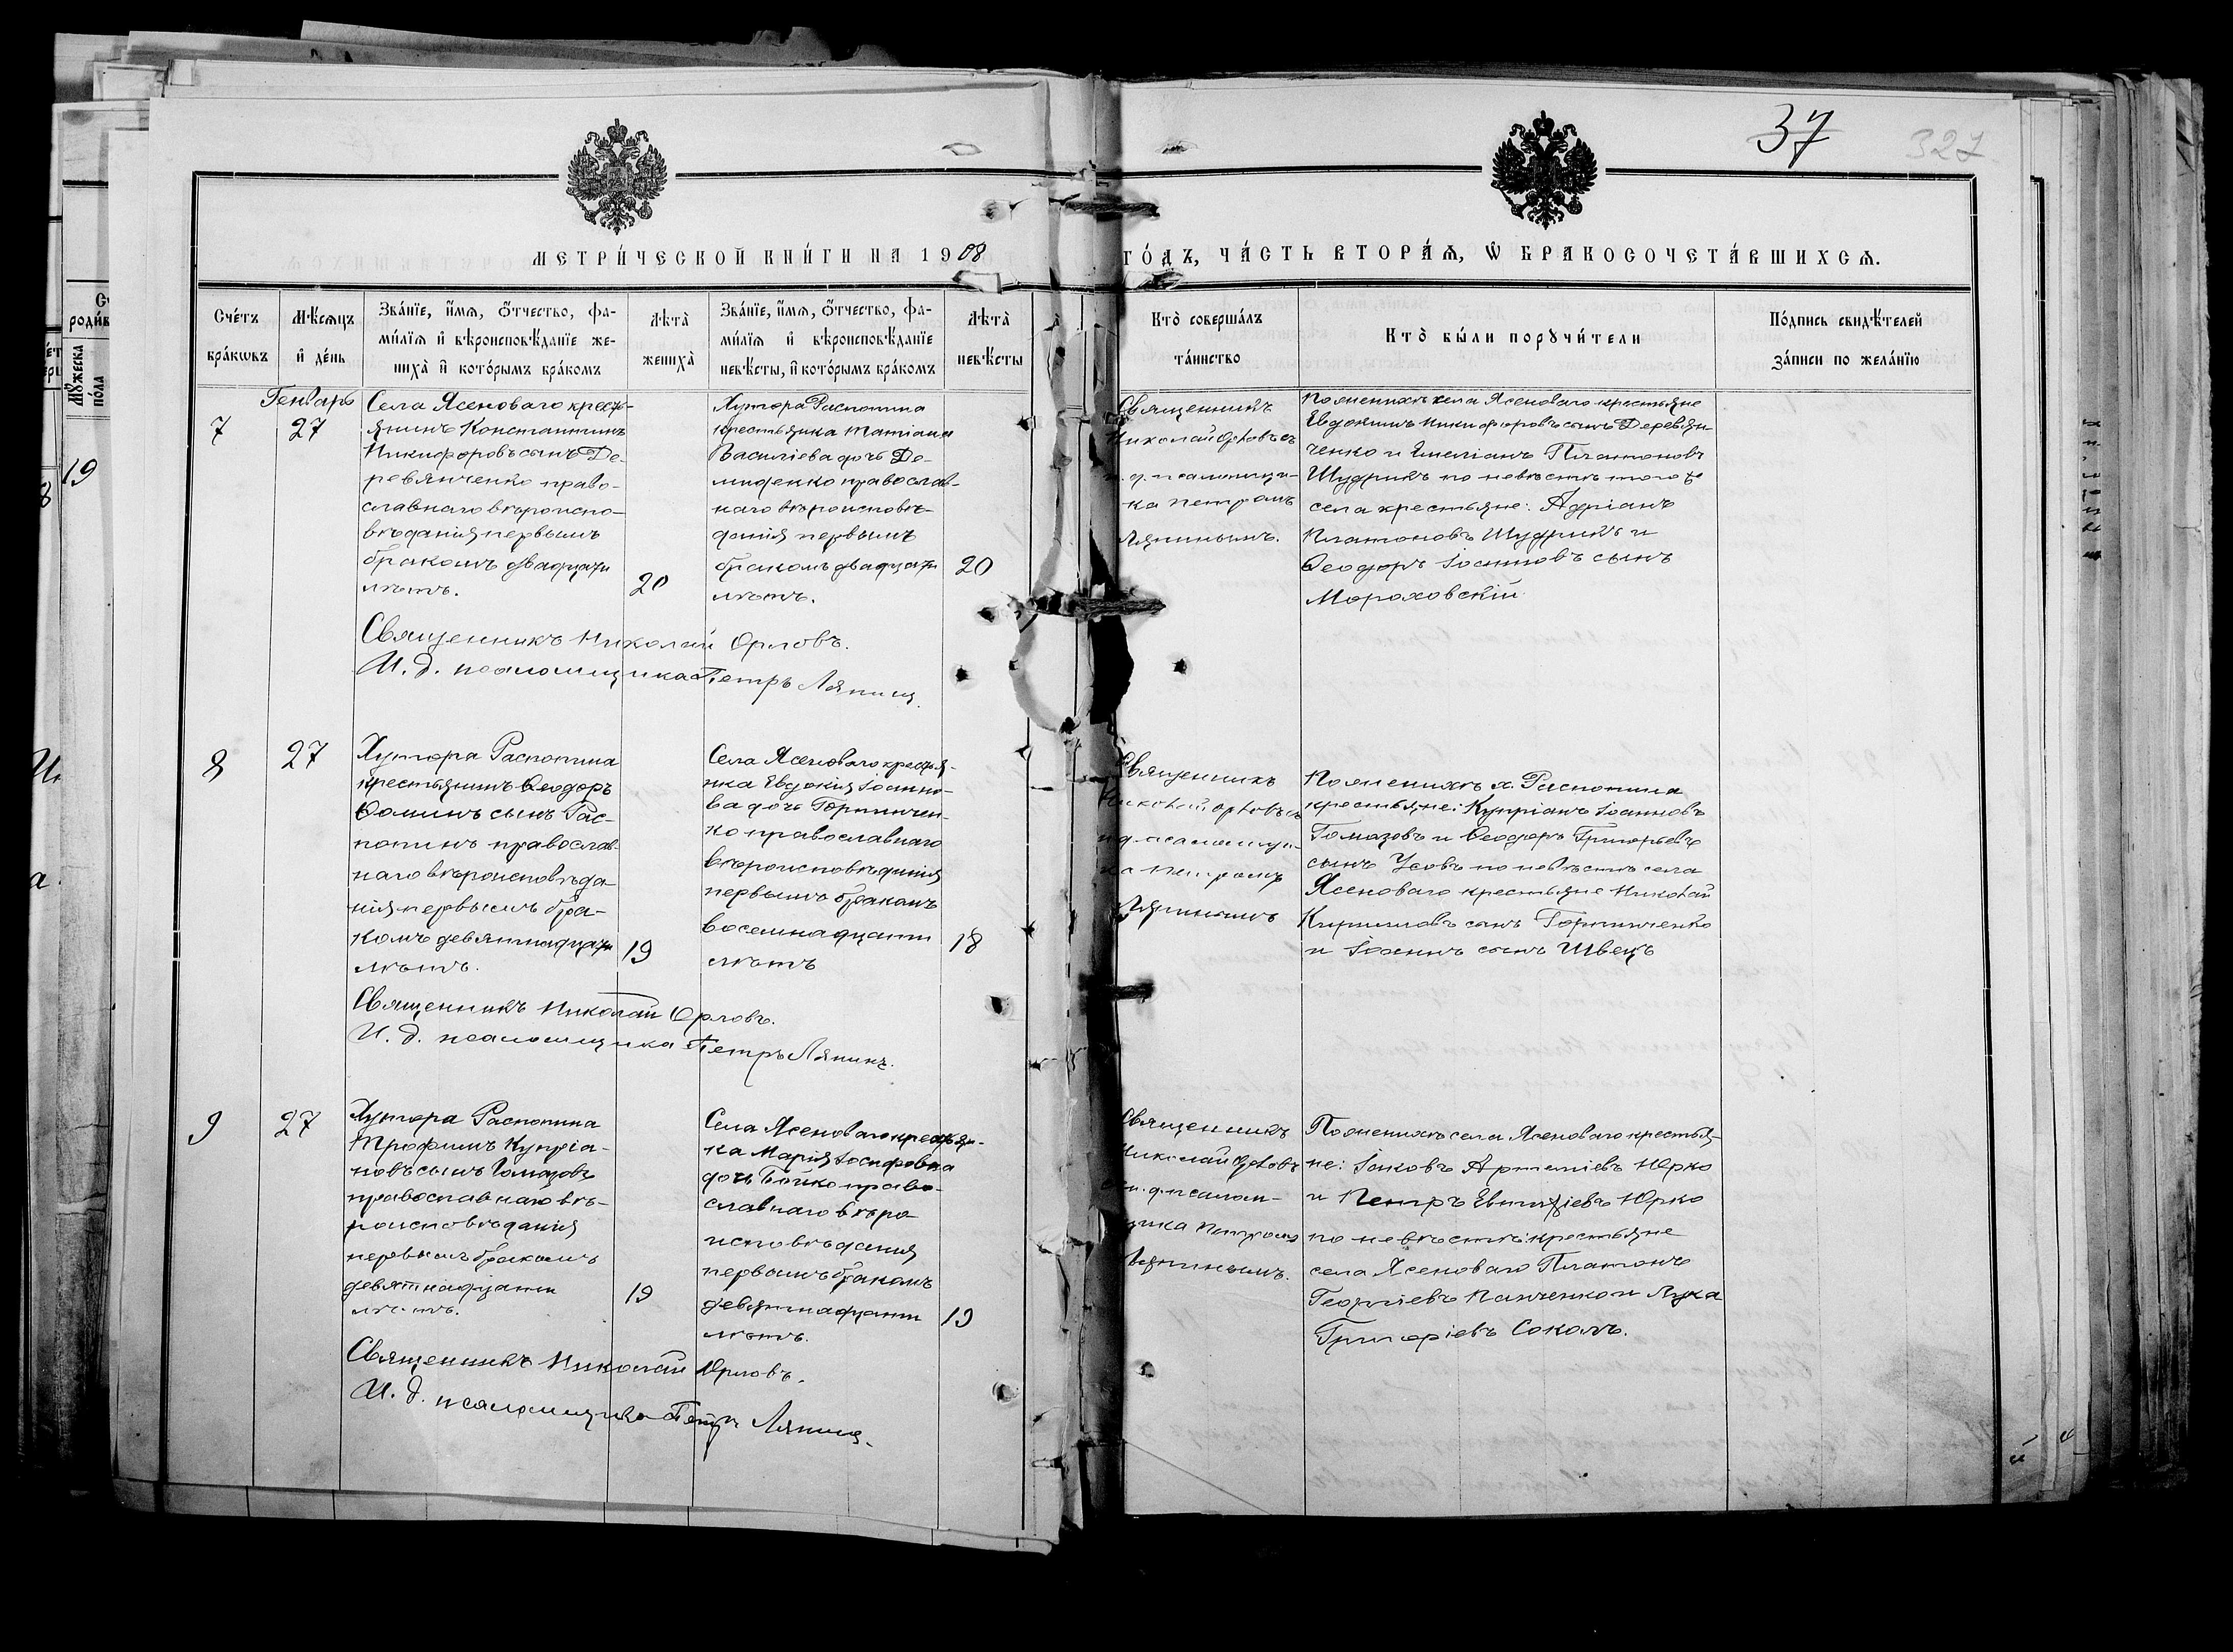 37
327
МЕТРИ́ЧЕСКОЙ КНИ́ГИ НА 1908
ГО́ДЪ, ЧА́СТЬ ВТОРА́Ѧ, Ѡ҆ БРАКОСОЧЕТА́ВШИХСѦ.
Сче́тъ
бра́кѡвъ
Мѣ́сѧцъ
и҆ де́нь
Зва́нїе, и҆́мѧ, ѻ҆́тчество, фа-
ми́лїѧ и҆ вѣроисповѣ́данїе же-
ниха̀ и҆ кото́рымъ бра́комъ
Лѣ́та̀
жениха̀
Зва́нїе, и҆́мѧ, ѻ҆́тчество, фа-
ми́лїѧ и҆ вѣроисповѣ́данїе
невѣ́сты, и҆ кото́рымъ бра́комъ
Лѣ́та̀
невѣ́сты
Кто̀ соверша́лъ
та́инство
Кто̀ бы́ли порꙋчи́тели
По́дпись свидѣ́телей
за́писи по жела́нїю
Генварь
7
27
Села Ясеноваго кресть-
янинъ Константинъ
Никифоровъ сынъ Де-
ревянченко право-
славнаго вѣроиспо-
вѣданія первымъ
бракомъ двадцати
лѣтъ.
20
Хутора Распопина
крестьянка Матіана
Василіева дочь Де-
миденко православ-
наго вѣроисповѣ-
данія первымъ
бракомъ двадцати
лѣтъ.
20
Священникъ
Николай Орловъ съ
и. д. псаломщи-
ка Петромъ
Ляпинымъ.
По женихѣ села Ясеноваго крестьяне
Евдокимъ Никифоровъ сынъ Деревян-
ченко и Емеліанъ Платоновъ
Шудрикъ по невѣстѣ того же
села крестьяне: Адріанъ
Платоновъ Шудрикъ и
Ѳеодоръ Іоанновъ сынъ
Мороховскій
Священникъ Николай Орловъ.
И. д. псаломщика Петръ Ляпинъ.
8
27
Хутора Распопина
крестьянинъ Ѳеодоръ
Ѳоминъ сынъ Рас-
попинъ православ-
наго вѣроисповѣда-
нія первымъ бра-
комъ девятнадцати
лѣтъ.
19
Села Ясеноваго крестья-
нка Евдокія Іоанно-
ва дочь Горпинчен-
ко православнаго
вѣроисповѣданія
первымъ бракомъ
восемнадцати
лѣтъ
18
Священникъ
Николай Орловъ съ
и д. псаломщи-
ка Петромъ
Ляпинымъ
По женихѣ х. Распопина
крестьяне: Купріанъ Іоанновъ
Гомазовъ и Ѳеодоръ Григорьевъ
сынъ Усовъ по невѣстѣ села
Ясеноваго крестьяне Николай
Кирилловъ сынъ Горпинченко
и Іоаннъ сынъ Швецъ
Священникъ Николай Орловъ.
И. д. псаломщика Петръ Ляпинъ.
9
27
Хутора Распопина
Трофимъ Купріа-
новъ сынъ Гомазовъ
православнаго вѣ-
роисповѣданія
первымъ бракомъ
девятнадцати
лѣтъ.
19
Села Ясеноваго крестьян-
ка Марія Іосифовна
дочь Бойко право-
славнаго вѣро-
исповѣданія
первымъ бракомъ
девятнадцати
лѣтъ.
19
Священникъ
Николай Орловъ
съ и. д. псалом-
щика Петромъ
Ляпинымъ.
По женихѣ села Ясеноваго крестья-
не: Іаковъ Артеміевъ Юрко
и Петръ Евтихіевъ Юрко
по невѣстѣ: крестьяне
села Ясеноваго Платонъ
Георгіевъ Панченко и Лука
Григоріевъ Соколъ.
Священникъ Николай Орловъ.
И. д. псаломщика Петръ Ляпинъ.